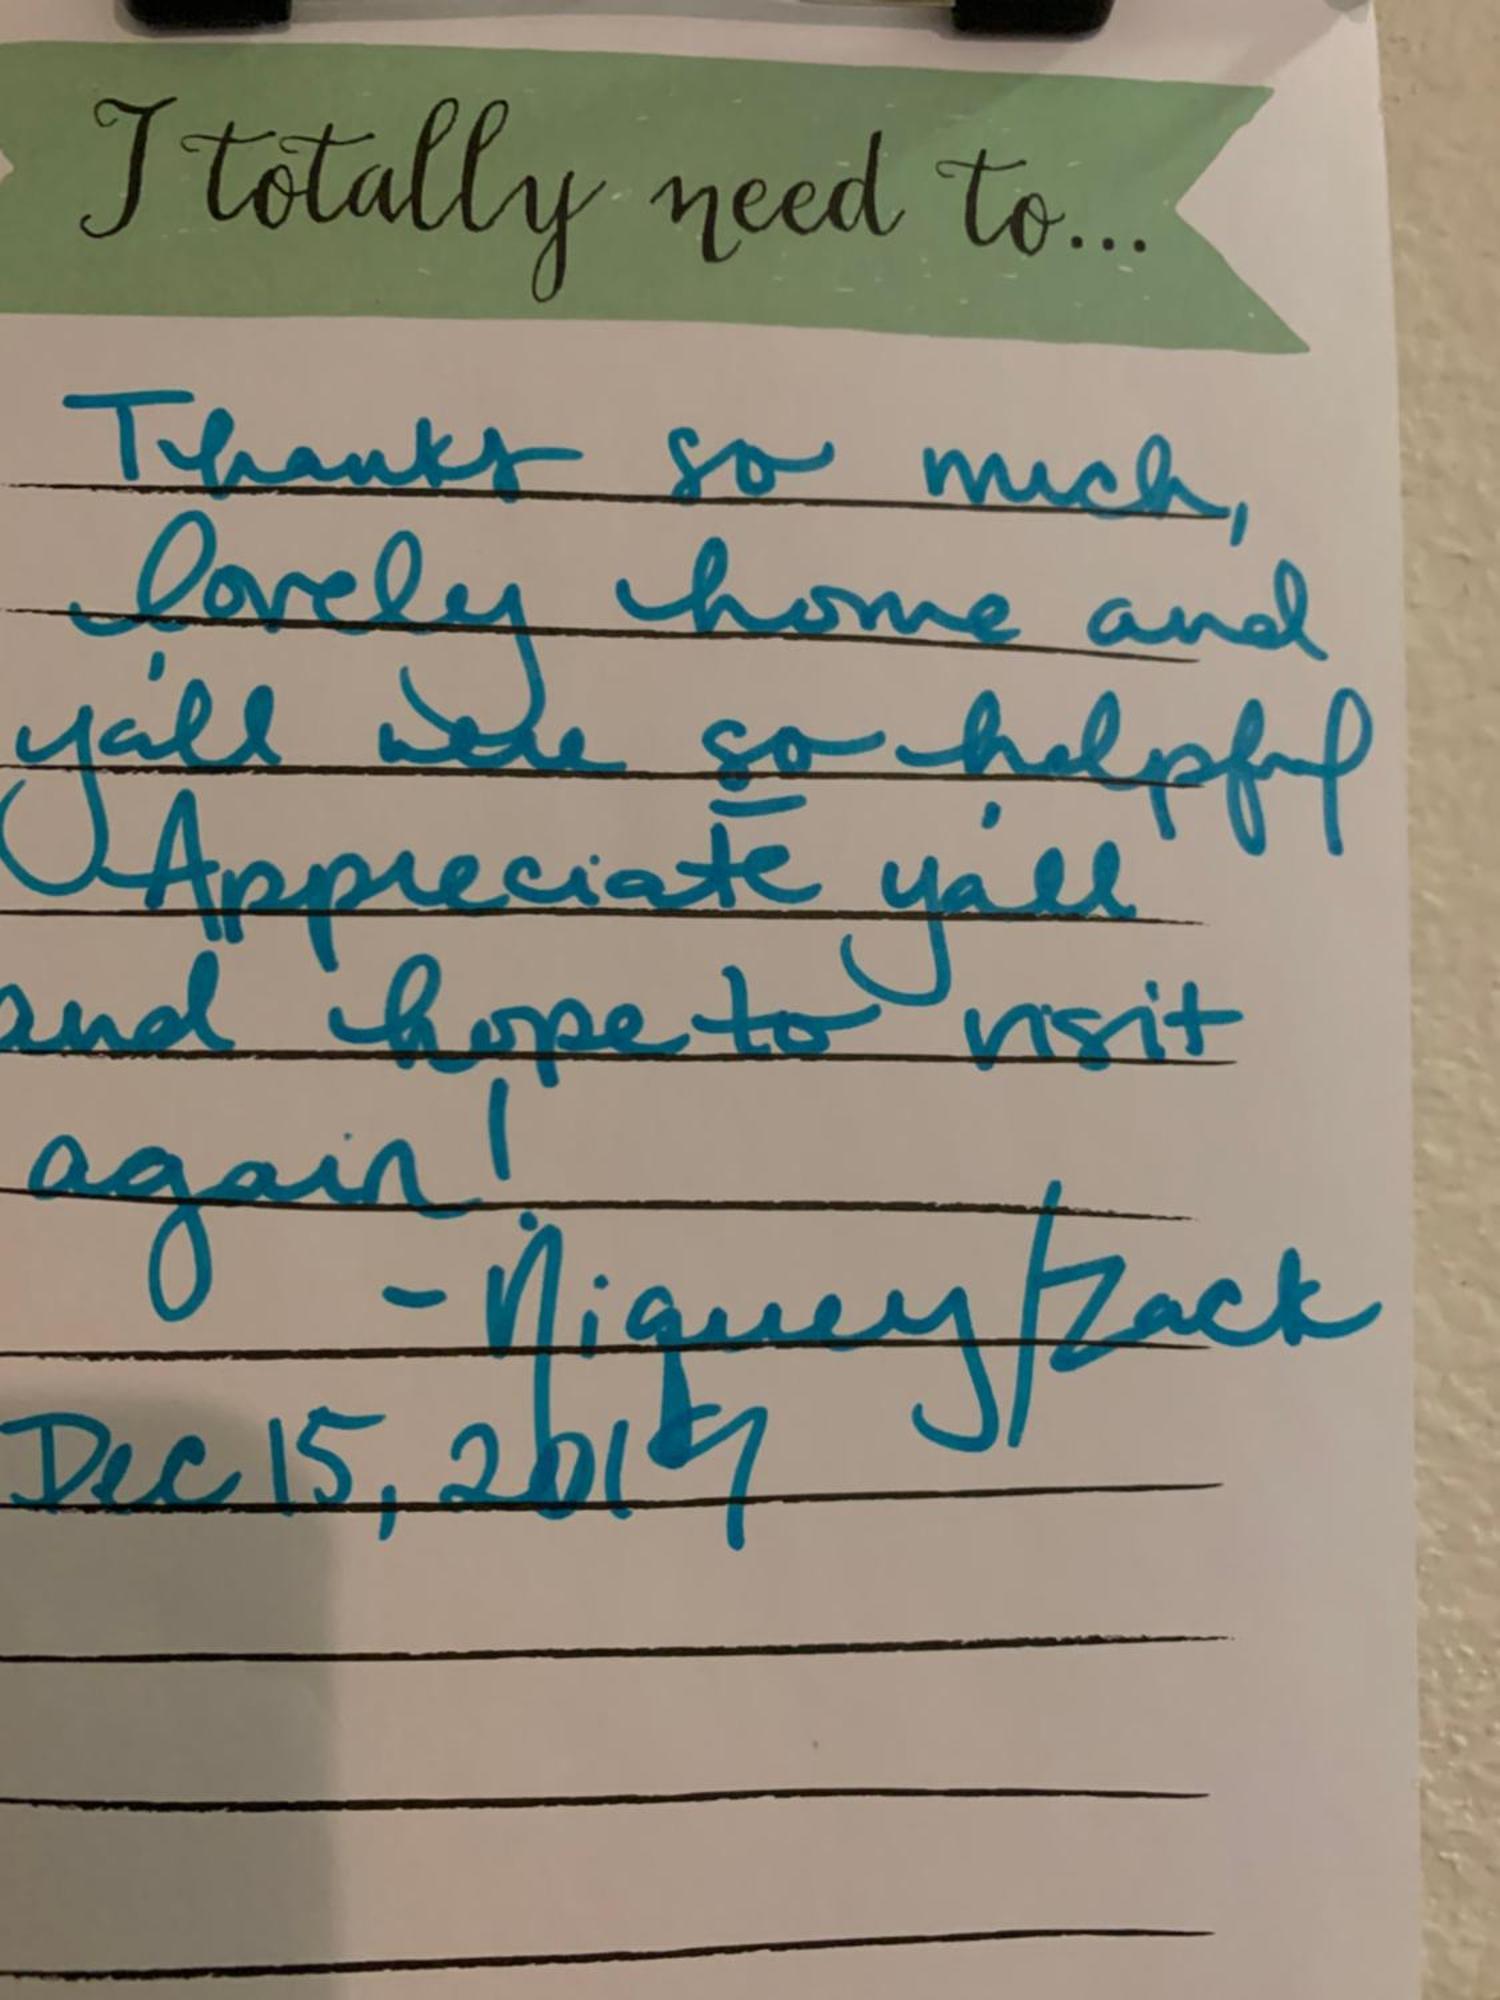 I totally need to...
Thanks so much,
lovely home and
y'all were so helpful
Appreciate y'all
and hope to visit
again!
- Niquey/Zack
Dec 15, 2019